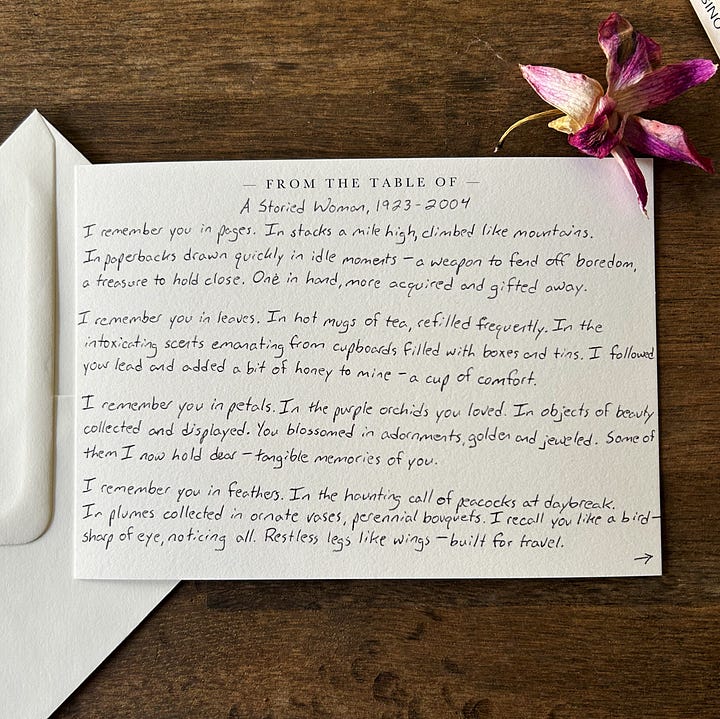 — FROM THE TABLE OF —
A Storied Woman, 1923-2004
I remember you in pages. In stacks a mile high, climbed like mountains.
In paperbacks drawn quickly in idle moments – a weapon to fend off boredom,
a treasure to hold close. One in hand, more acquired and gifted away.
I remember you in leaves. In hot mugs of tea, refilled frequently. In the
intoxicating scents emanating from cupboards filled with boxes and tins. I followed
your lead and added a bit of honey to mine – a cup of comfort.
I remember you in petals. In the purple orchids you loved. In objects of beauty
collected and displayed. You blossomed in adornments, golden and jeweled. Some of
them I now hold dear – tangible memories of you.
I remember you in feathers. In the haunting call of peacocks at daybreak.
In plumes collected in ornate vases, perennial bouquets. I recall you like a bird –
sharp of eye, noticing all. Restless legs like wings – built for travel.
→